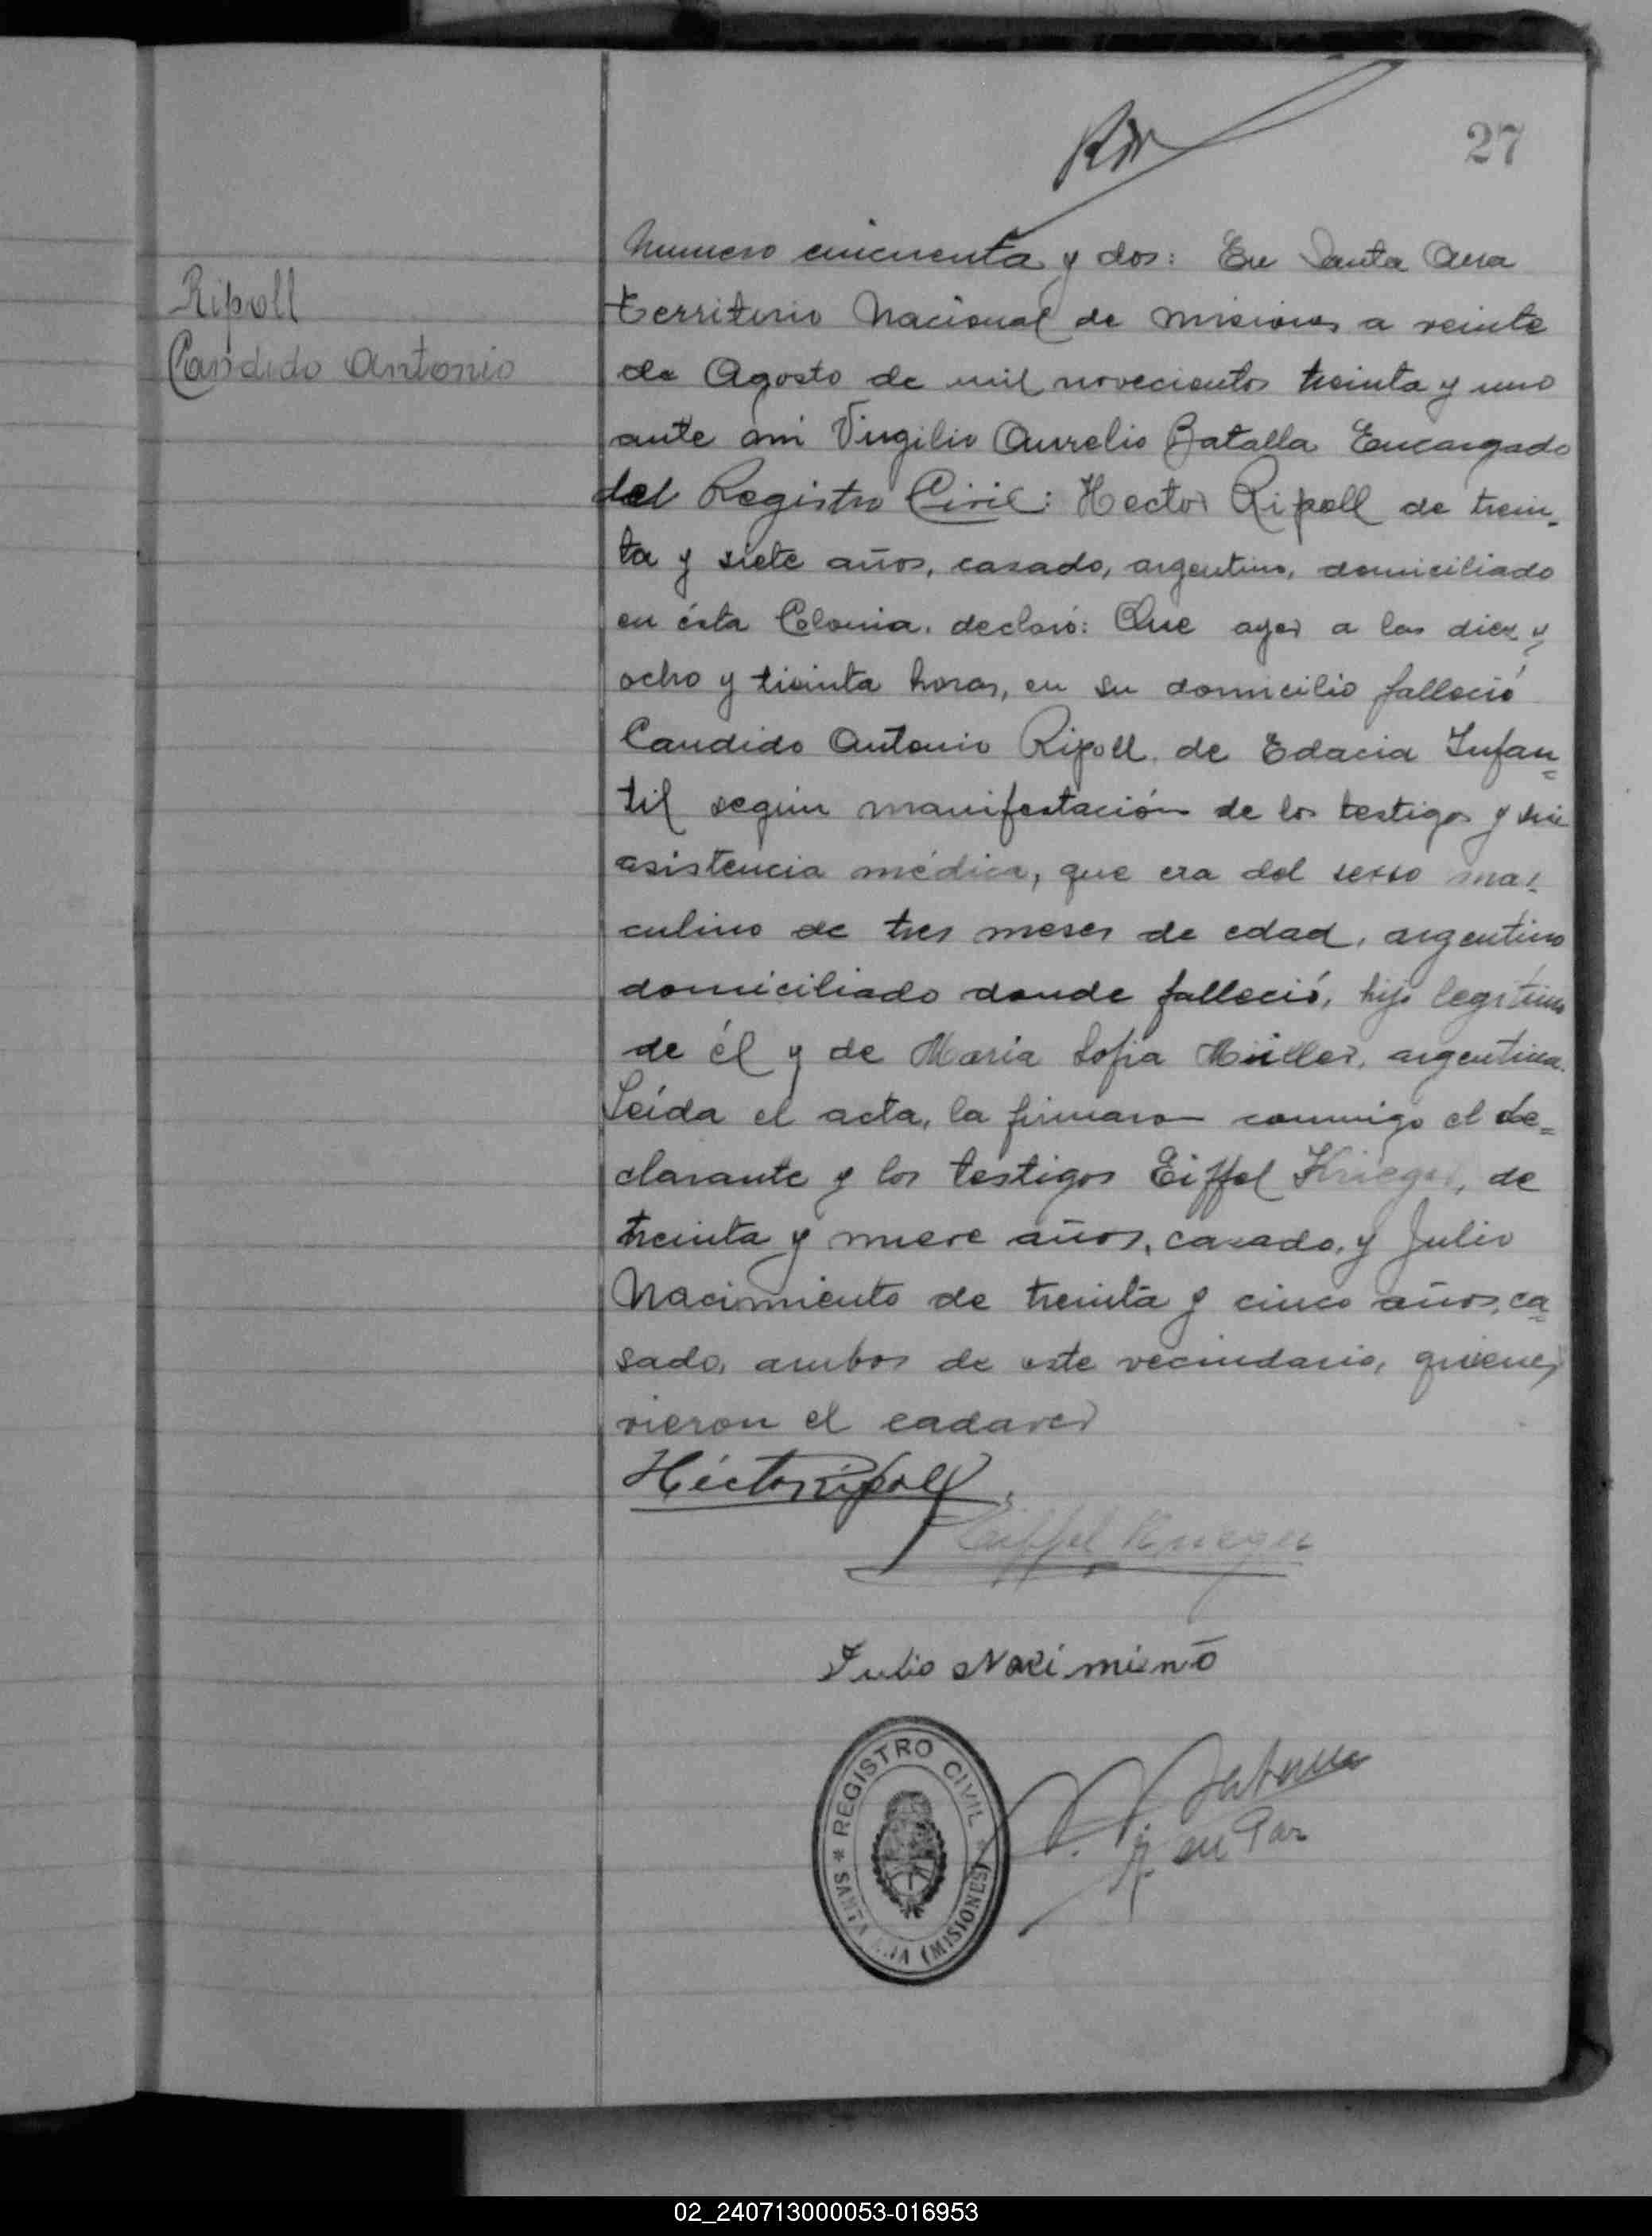 27
Ripoll
Candido Antonio
Numero cincuenta y dos: En Santa Ana
territorio Nacional de Misiones a veinte
de Agosto de mil novecientos treinta y uno
ante mi Virgilio Aurelio Batalla Encargado
del Registro Civil: Hector Ripoll de trein-
ta y siete años, casado, argentino, domiciliado
en ésta Colonia, declaró: Que ayer a las diez y
ocho y treinta horas, en su domicilio falleció
Candido Antonio Ripoll, de Edacia Infan=
til según manifestación de los testigos y sin
asistencia médica, que era del sexso mas-
culino de tres meses de edad, argentino
domiciliado donde falleció, hijo legítimo
de él y de Maria Sofia Müller, argentina.
Leída el acta, la firmaron conmigo el de=
clarante y los testigos Eiffel Krieger, de
treinta y nueve años, casado, y Julio
Nacimiento de treinta y cinco años, ca=
sado, ambos de este vecindario, quienes
vieron el cadaver
Héctor Ripoll
Eiffel Krieger
Julio Nacimiento
REGISTRO CIVIL
SANTA ANA (MISIONES)
J. de Paz
02_240713000053-016953